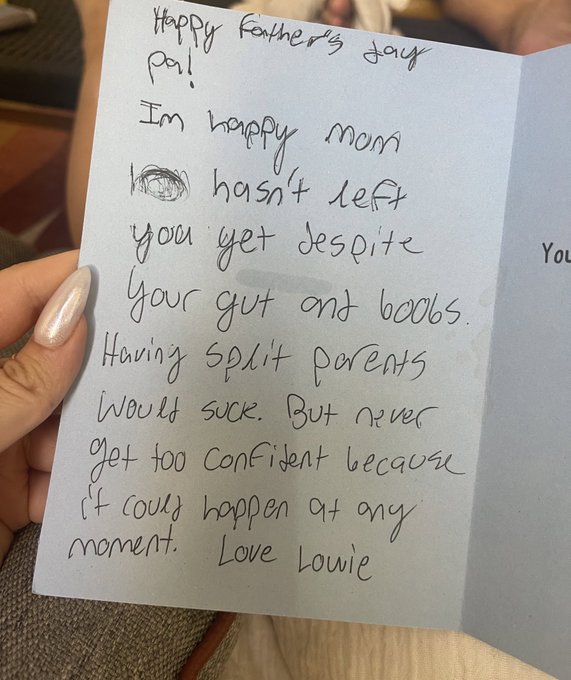 Happy Father's day
pa!
Im happy mom
hasn't left
you yet despite
Your gut and boobs.
Having split parents
Would suck. But never
get too confident because
it could happen at any
moment. Love Lowie
You